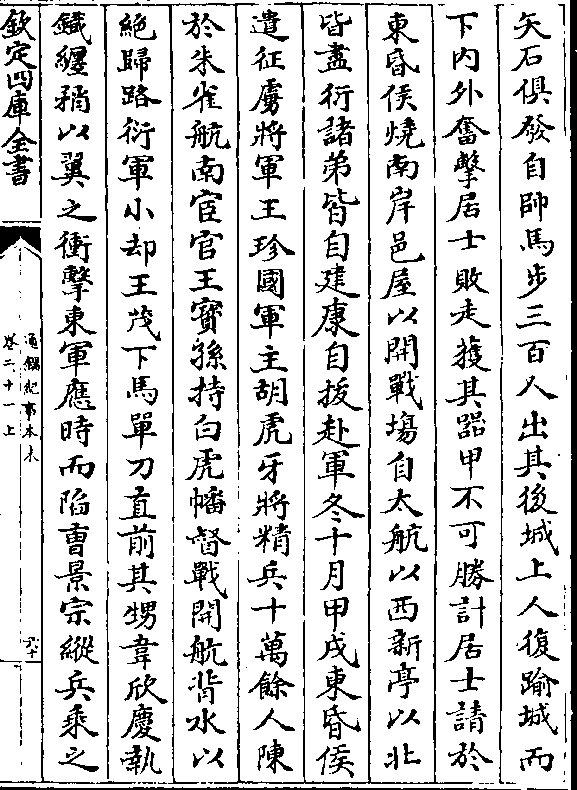 矢石俱發自帥馬步三百人出其後城上人復踰城而
下内外奮擊居士敗走獲其器甲不可勝計居士請於
東昏侯燒南岸邑屋以開戰場自太航以西新亭以北
皆盡衍諸弟皆自建康自拔赴軍冬十月甲戌東昏侯
遣征虜將軍王珍國軍主胡虎牙將精兵十萬餘人陳
於朱雀航南宦官王寳孫持白虎幡督戰開航背水以
絶歸路衍軍小却王茂下馬單刀直前其甥韋欣慶執
鐵纒矟以翼之衝擊東軍應時而陷曹景宗縱兵乗之
欽定四庫全書
通鑑紀事本末
卷二十一上